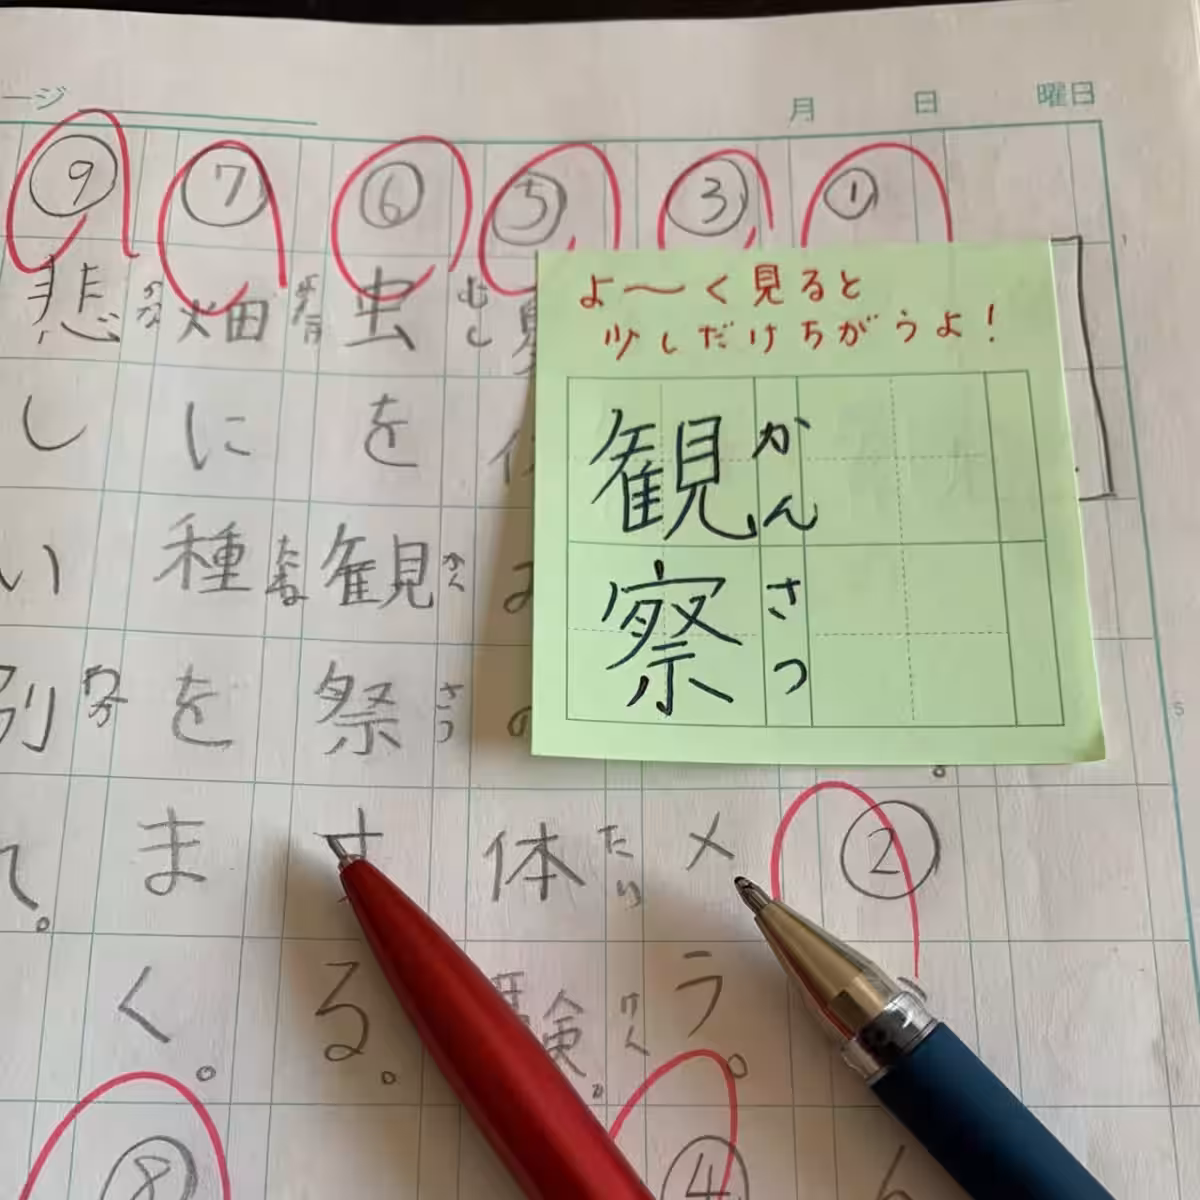 ージ
月 日 曜日
よ〜く見ると
少しだけちがうよ!
観察
かんさつ
①
②
③
メラ。
④
⑤
体験。
⑥虫を観祭する。
むし
かん
さつ
⑦畑に種をまく。
たね
⑧
⑨悲しい別れ。
かな
5